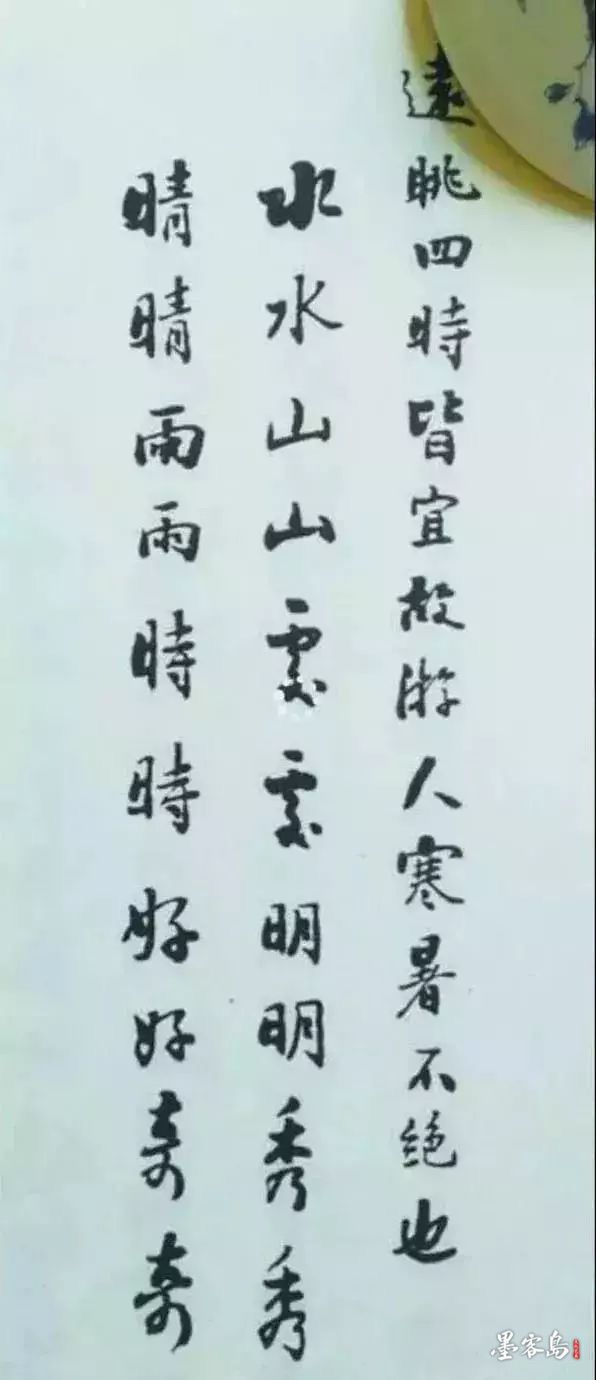 遠眺四時皆宜故游人寒暑不绝也
水水山山處處明明秀秀
晴晴雨雨時時好好奇奇
墨客岛